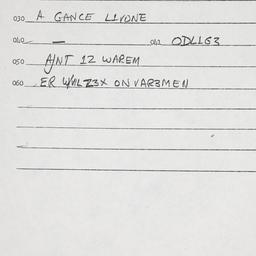 030 A GANCE LIVONE
040 — 042 ODLLG3
050 AJNT 12 WAREM
060 ER ON VAR3MEN